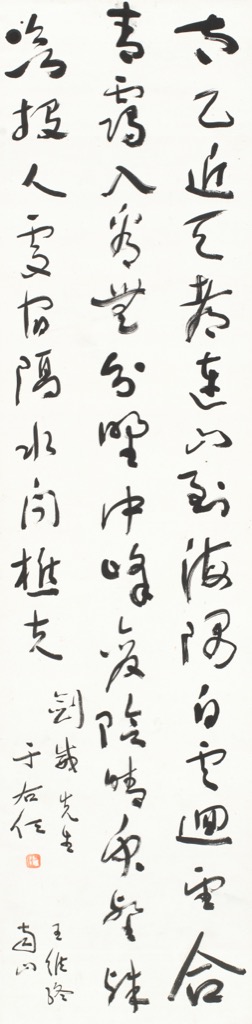 太乙近天都連山到海隅白雲迴望合
青靄入看無分野中峰變陰晴眾壑殊
欲投人處宿隔水問樵夫
劍威先生
于右任
王維終
南山